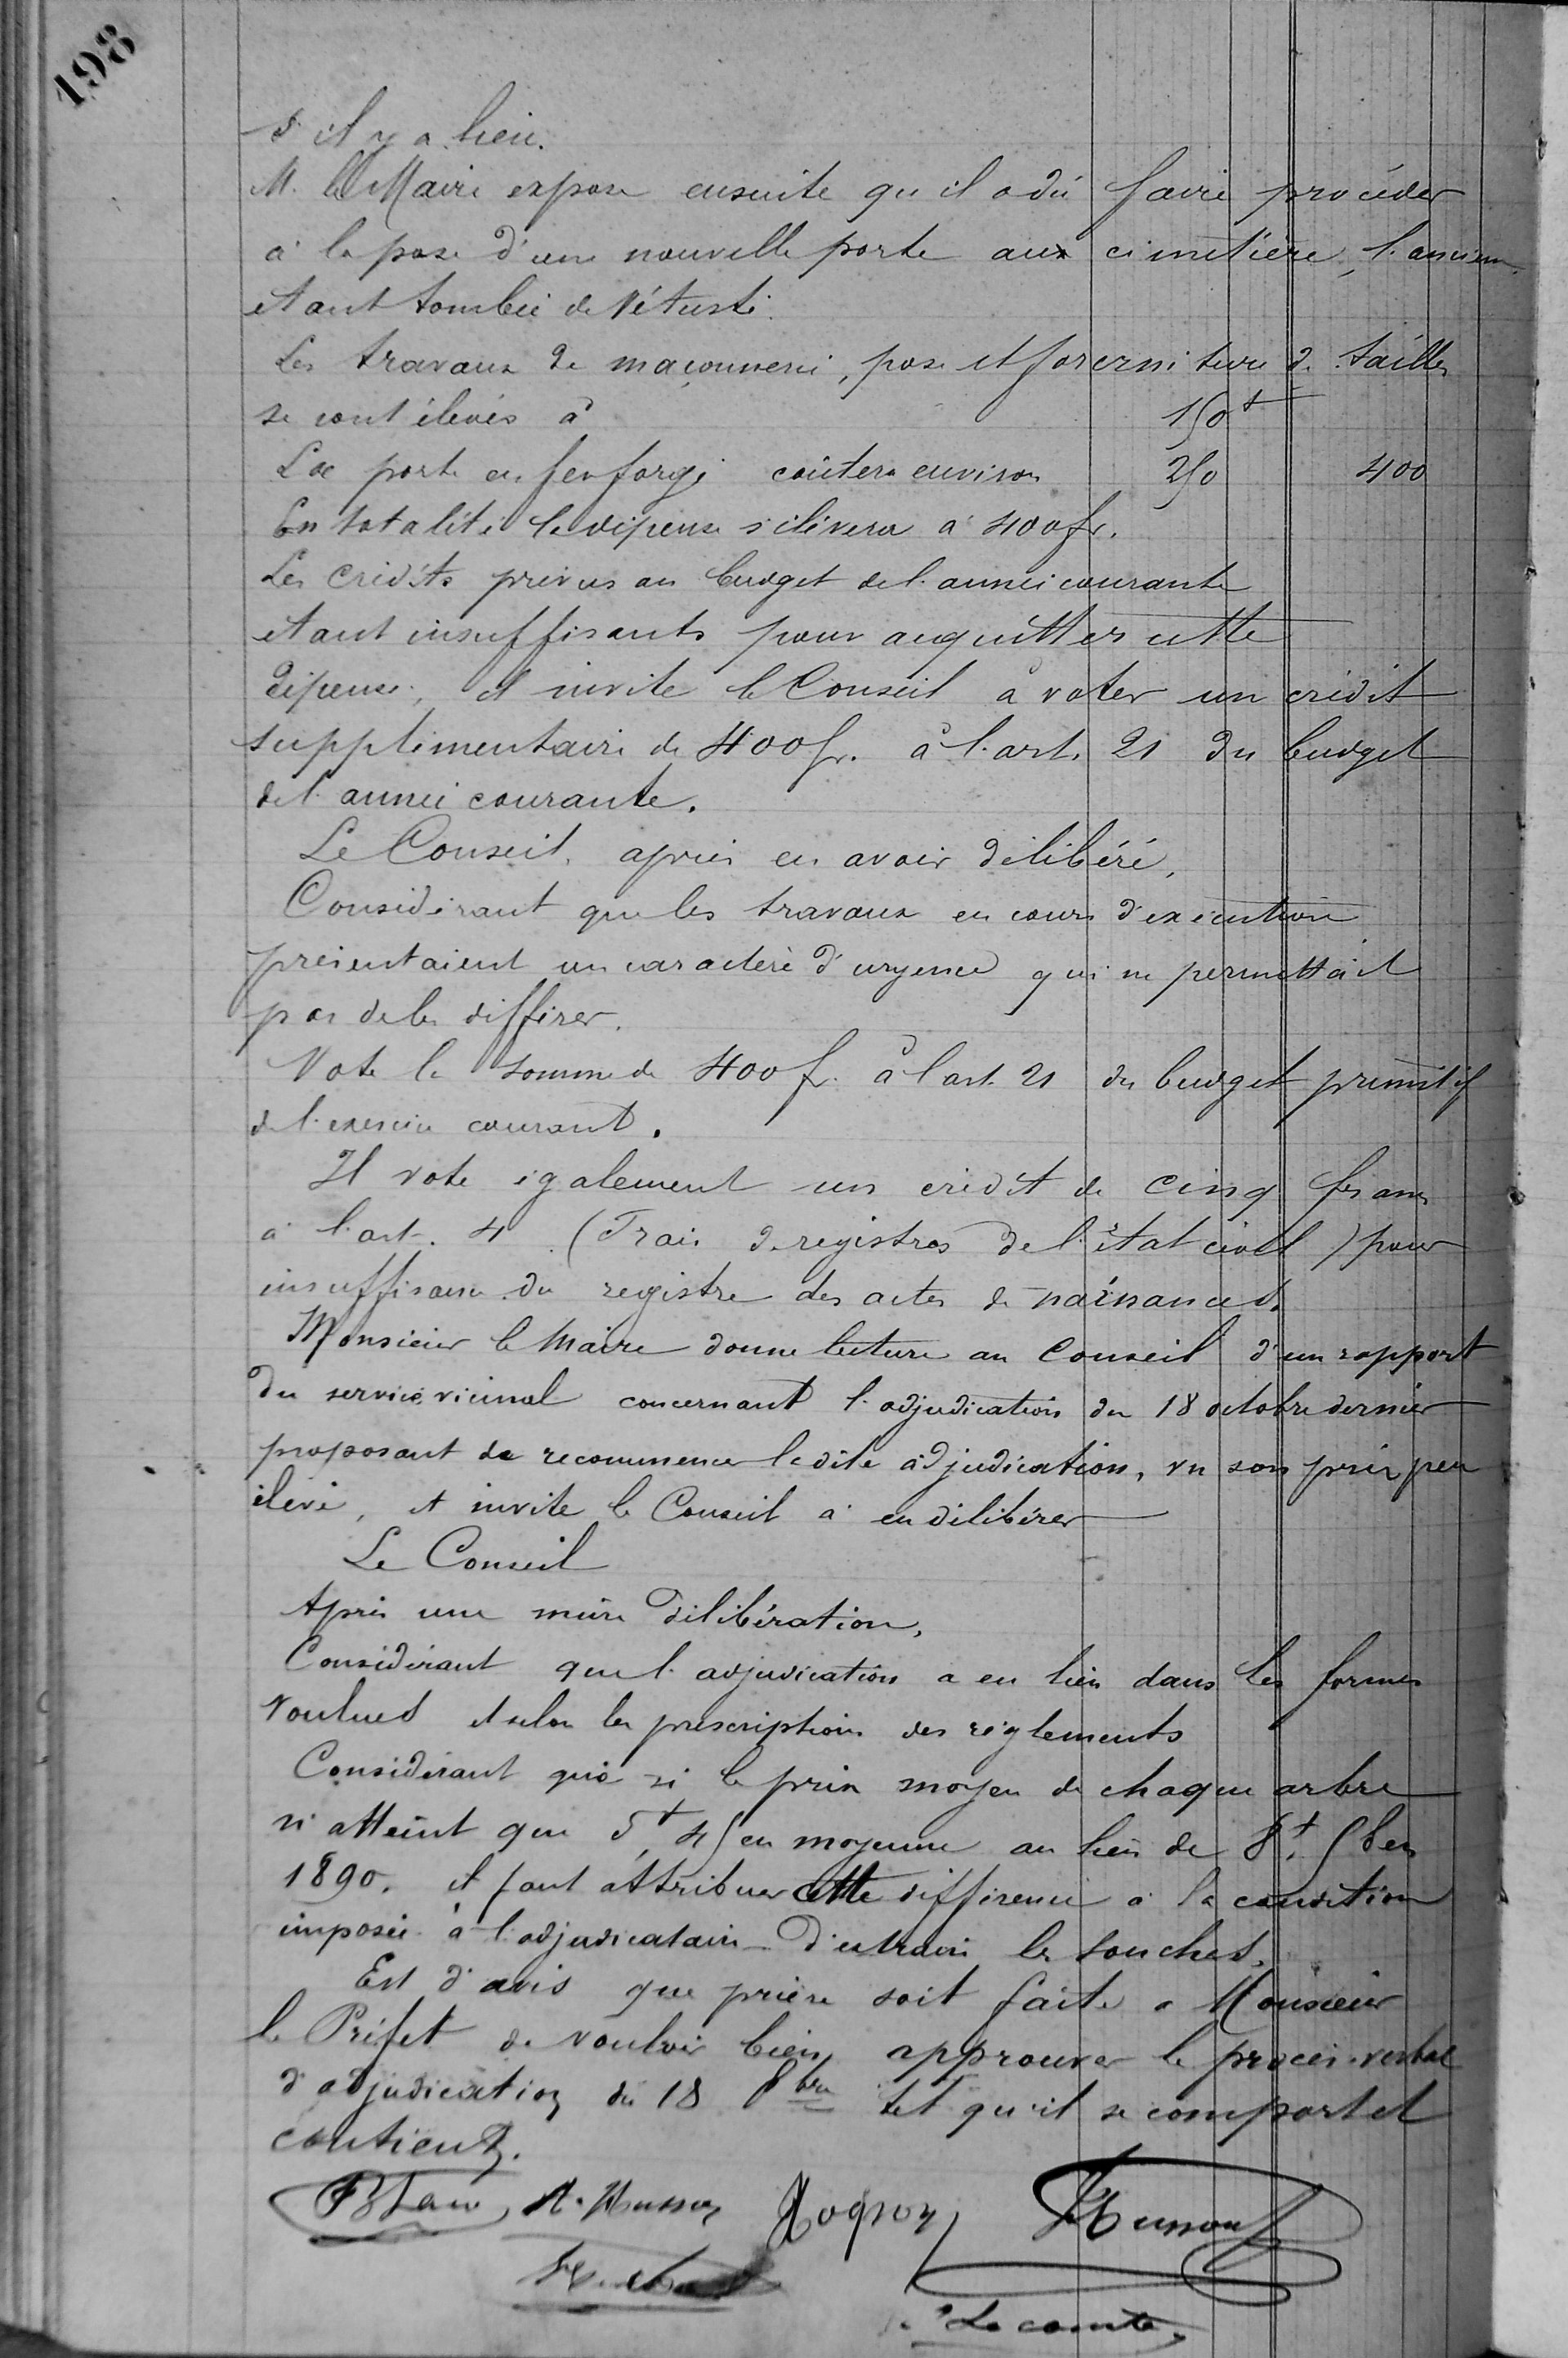 198
s'il y a lieu.
M. le Maire expose ensuite qu'il a dû faire procéder
à la pose d'une nouvelle porte aux cimetière, l'ancienne
étant tombée de vétusté.
Les travaux de maçonnerie, pose et forerniture de tailles
se sont élevés à 150f
La porte en fer forgé coûtera environ 250 400
En totalité la dépense s'élèvera à 400 fr.
Les crédits prévus au budget de l'année courante
étant insuffisants pour acquitter cette
dépense, il invite le Conseil à voter un crédit
supplémentaire de 400 fr. à l'art. 21 du budget
de l'année courante.
Le Conseil, après en avoir délibéré,
Considérant que les travaux en cours d'exécution
présentaient un caractère d'urgence qui ne permettait
pas de les différer.
Vote la somme de 400 f. à l'art. 21 du budget primitif
de l'exercice courant.
Il vote également un crédit de cinq francs
à l'art. 4 (Frais de registres de l'état civil) pour
insuffisance du registre des actes de naissances.
Monsieur le Maire donne lecture au Conseil d'un rapport
du service vicinal concernant l'adjudication du 18 octobre dernier
proposant de recommencer la dite adjudication, vu son prix peu
élevé, et invite le Conseil à en délibérer
Le Conseil
Après une mûre délibération,
Considérant que l'adjudication a eu lieu dans les formes
voulues et selon les prescriptions des règlements
Considérant que si le prix moyen de chaque arbre
n'atteint que 5f,45 en moyenne au lieu de 8f,58 en
1890, il faut attribuer cette différence à la condition
imposée à l'adjudicataire d'extraire les souches.
Est d'avis que prière soit faite à Monsieur
le Préfet de vouloir bien approuver le procès-verbal
d'adjudication du 18 8bre tel qu'il se comporte et
contient.
A. Husson Rogron Husson
Lecomte